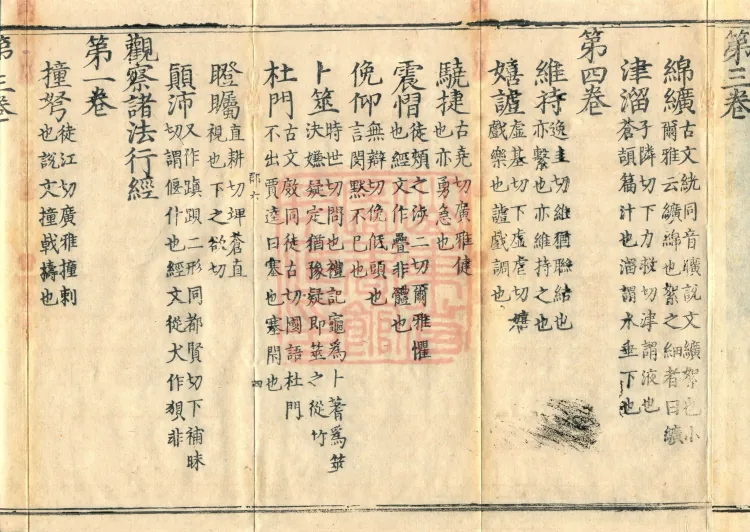 第三卷
綿纊古文絖同音曠說文纊絮也小
爾雅云纊綿也絮之細者曰纊
津溜子隣切下力救切津謂液也
蒼頡篇汁也溜謂水垂下也
第四卷
維持逸圭切維猶聯結也
亦繫也亦維持之也
嬉謔虛基切下虛虐切嬉
戲樂也謔戲調也
驍捷古堯切廣雅健
也亦勇急也
震慴徒頰之涉二切爾雅懼
也經文作疊非體也
俛仰無辯切俛低頭也
言閔默不已也
卜筮時世切問也禮記龜為卜蓍為筴
決嫌疑定猶豫疑即筮之從竹
杜門古文𢾖同徒古切國語杜門
不出賈逵曰塞也塞閉也
四
瞪矚直耕切埤蒼直
視也下之欲切
顚沛又作蹎䟺二形同都賢切下補昧
切謂偃仆也經文從犬作狽非
觀察諸法行經
第一卷
撞弩徒江切廣雅撞刺
也說文撞戟擣也